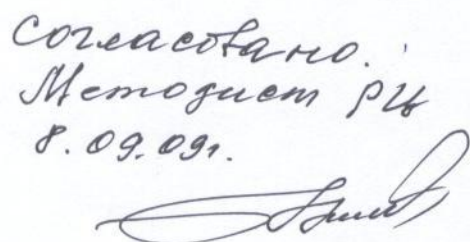 Согласовано.
Методист РЦ
8.09.09г.